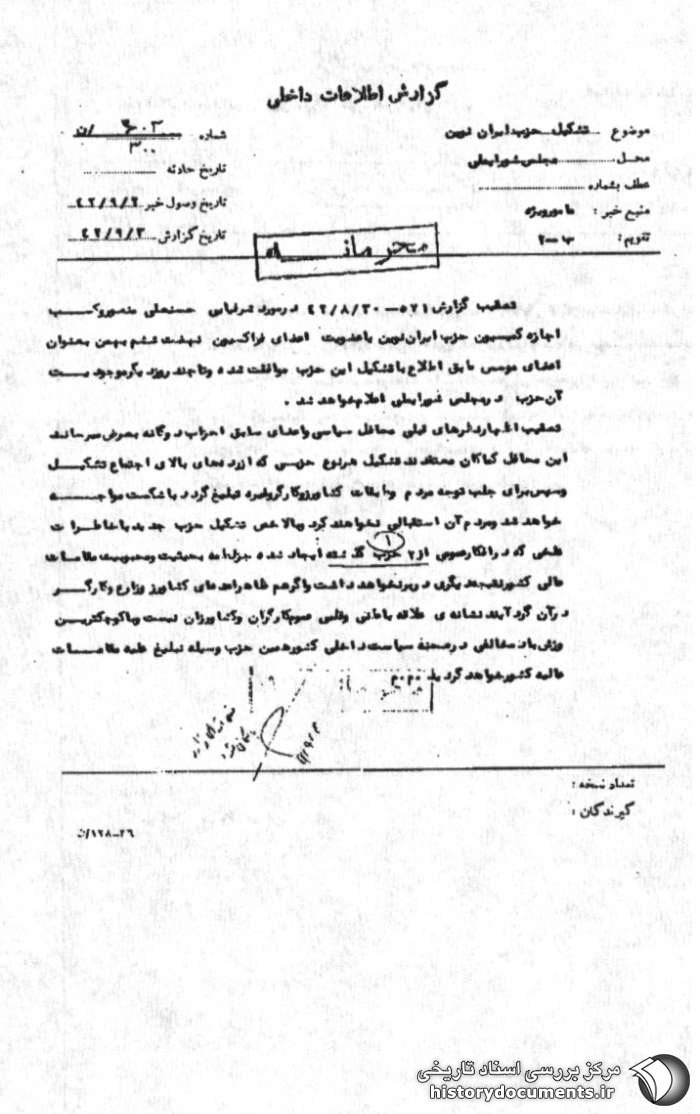 گزارش اطلاعات داخلی
موضوع تشکیل حزب ایران نوین
شماره ۶۰۳ /ن
۳۰۰
محل مجلس شورایملی
تاریخ حادثه
عطف بشماره
تاریخ وصول خبر ۴۲/۹/۲
منبع خبر : مامور ویژه
تاریخ گزارش ۴۲/۹/۳
تقویم : ب ۲۰۰
محرمانه
تعقیب گزارش ۵۲۱ – ۴۲/۸/۳۰ در مورد شرفیابی حسنعلی منصور و کسب
اجازه کمیسیون حزب ایران نوین با عضویت اعضای فراکسیون نهضت ششم بهمن بعنوان
اعضای موسس طبق اطلاع با تشکیل این حزب موافقت شده و تا چند روز دیگر موجودیست
آن حزب در مجلس شورایملی اعلام خواهد شد .
تعقیب اظهار نظرهای قبلی محافل سیاسی و اعضای سابق احزاب دوگانه بعرض میرساند
این محافل کماکان معتقدند تشکیل هر نوع حزبی که از رده های بالای اجتماع تشکیل
و سپس برای جلب توجه مردم و طبقات کشاورز و کارگر و غیره تبلیغ گردد با شکست مواجه
خواهد شد و مردم از آن استقبالی نخواهند کرد و بالاخص تشکیل حزب جدید با خاطرات
تلخی که در افکار عمومی از ۲ حزب گذشته ایجاد شده جز لطمه بحیثیت و محبوبیت مقامات
۱
عالی کشور نتیجه دیگری در بر نخواهد داشت و اگر هم ظاهرا عده ای کشاورز و زارع و کارگر
در آن گرد آیند نشانه ی علاقه باطنی و قلبی عموم کارگران و کشاورزان نیست و با کوچکترین
وزش باد مخالفی در صحنه سیاست داخلی کشور همین حزب وسیله تبلیغ علیه مقامات
عالیه کشور خواهد گردید
تعداد نسخه :
گیرندگان :
۲۶–۱۲۸/ن
مرکز بررسی اسناد تاریخی
historydocuments.ir